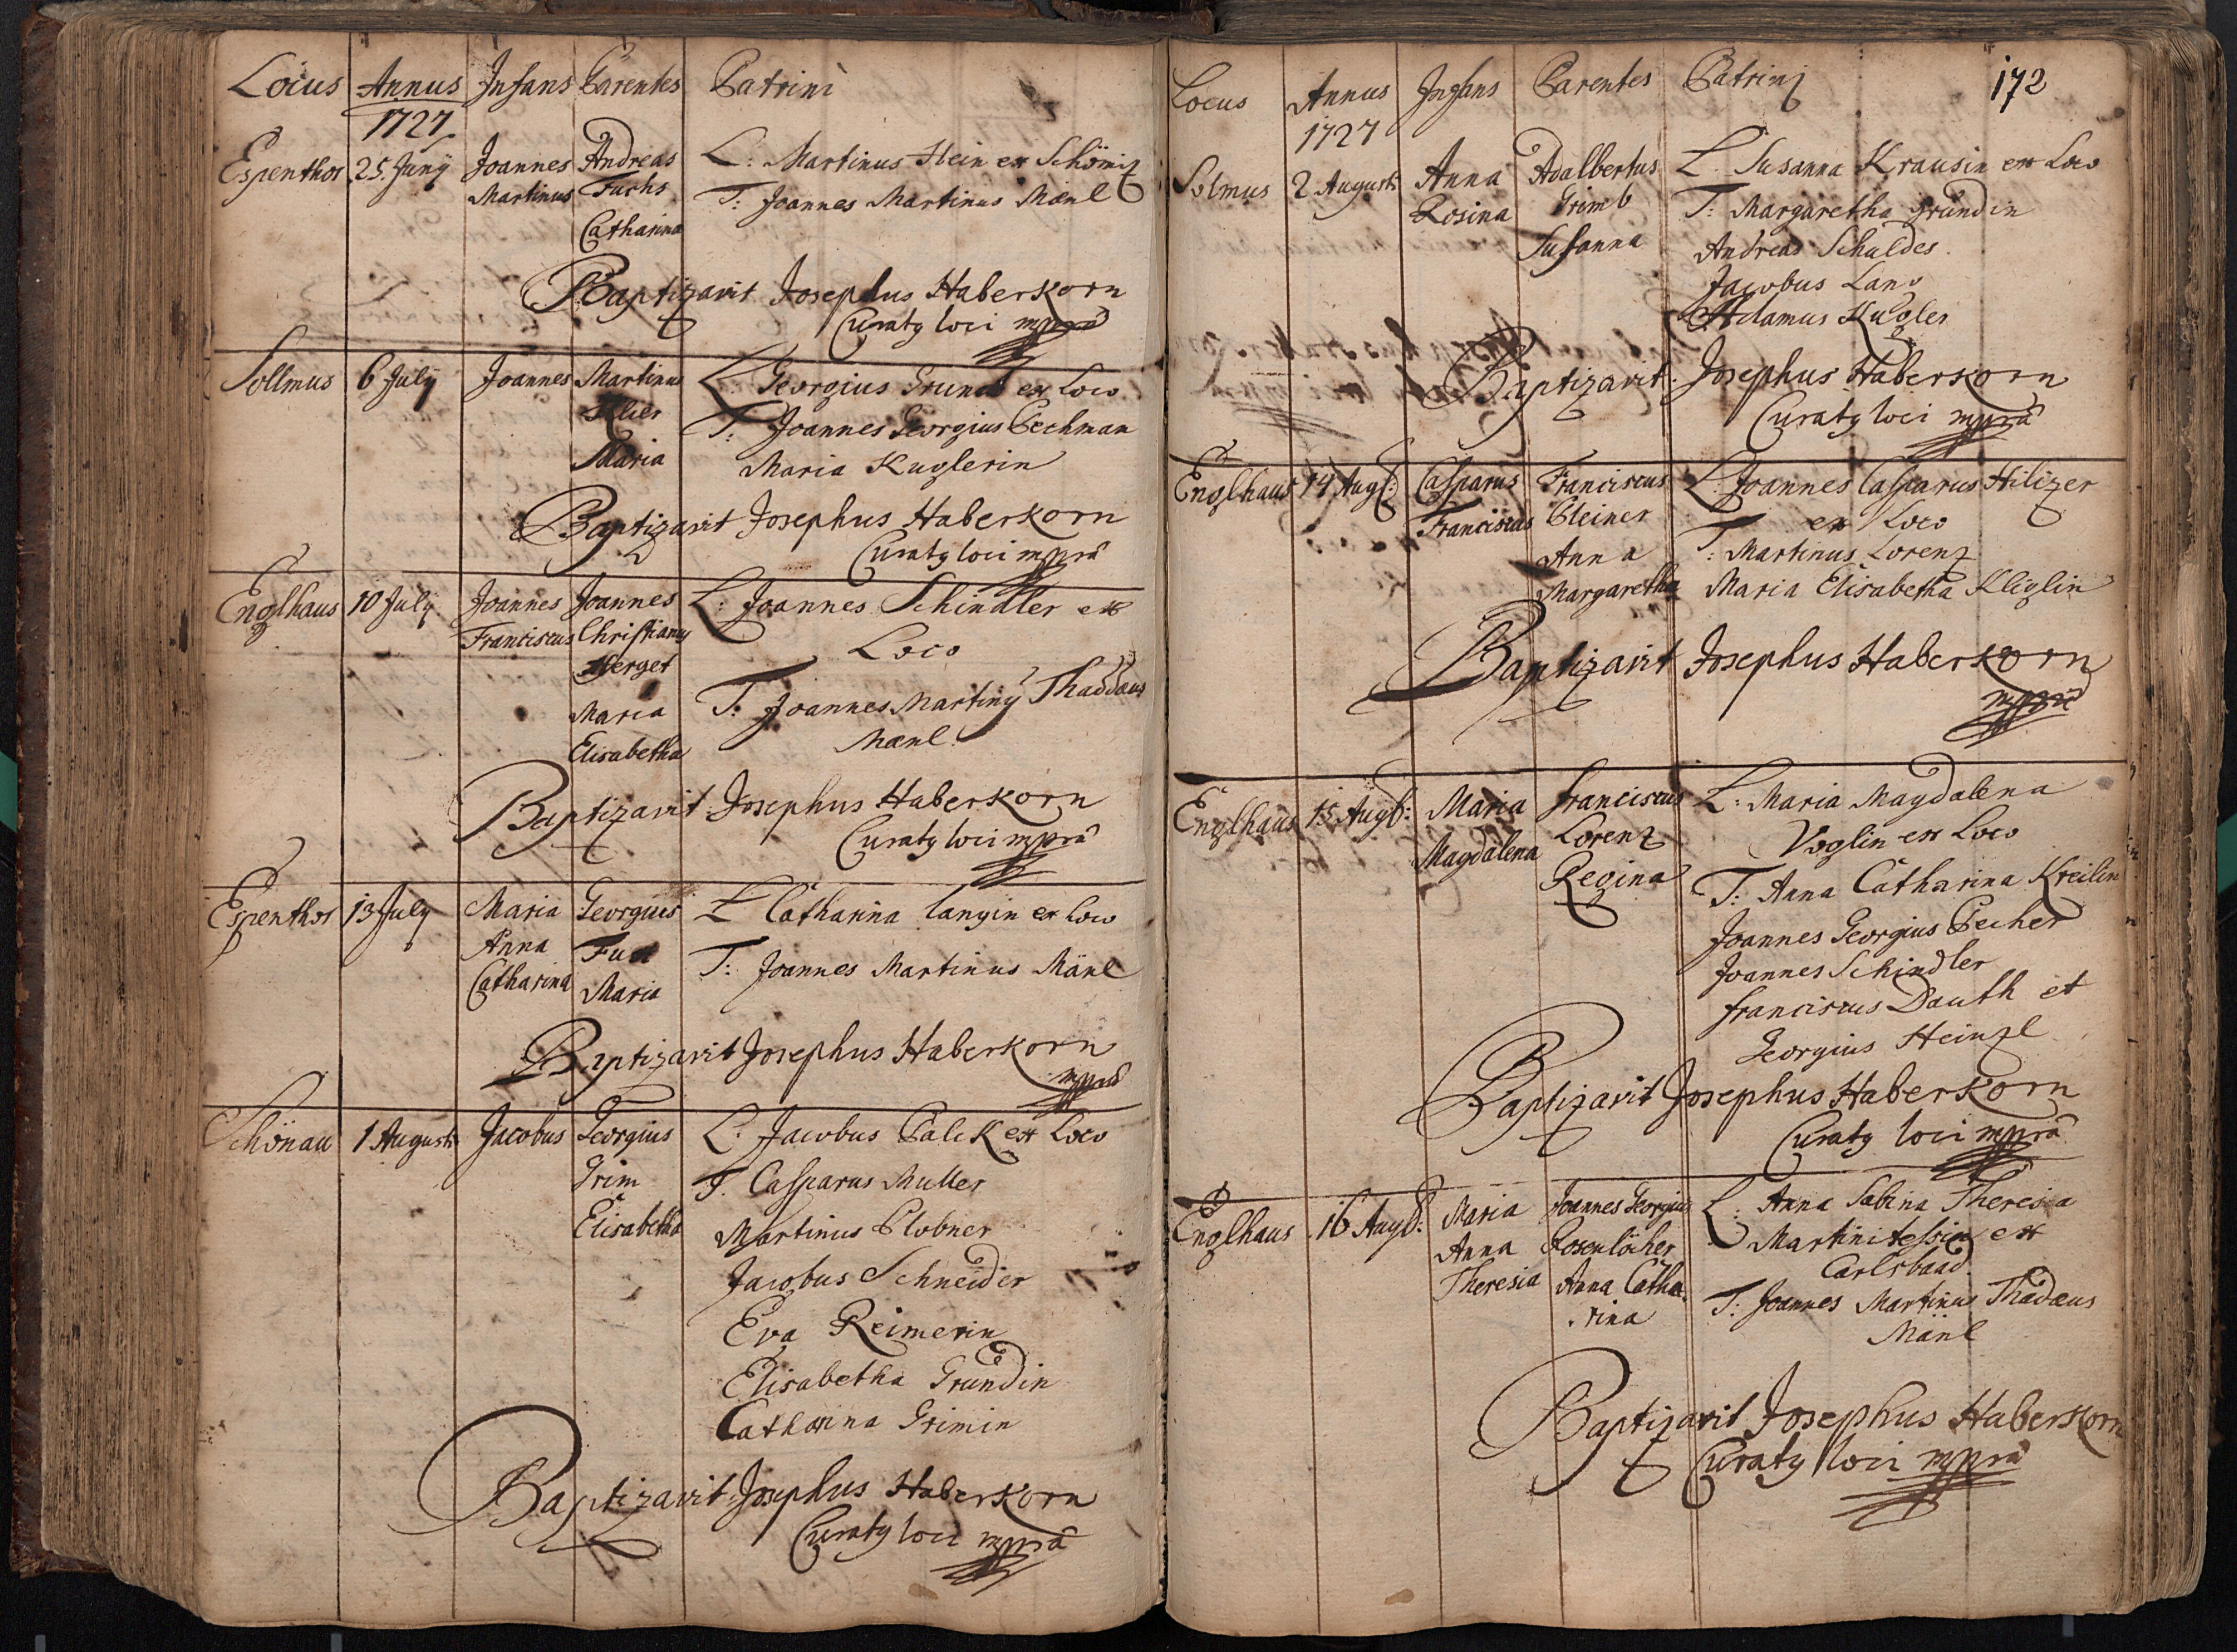 Locus Annus Infans Parentes Patrini
1727
Espenthor 25. Junÿ Joannes Martinus Andreas Fuchs Catharina
L: Martinus Hein ex Schömiz
T: Joannes Martinus Mænl
Baptizavit Josephus Haberkorn
Curatq loci mppria
Sollmus 6 Julÿ Joannes Martinus Klier Maria
L: Georgius Grundt ex Loco
T: Joannes Georgius Pechman
Maria Kuglerin
Baptizavit Josephus Haberkorn
Curatq loci mppria
Englhaus 10 Julÿ Joannes Franciscus Joannes Christianq Herget Maria Elisabetha
L: Joannes Schindler ex
Loco
T: Joannes Martinq Thaddæus
Mænl.
Baptizavit Josephus Haberkorn
Curatq loci mppria
Espenthor 13 July Maria Anna Catharina Georgius Maria
L Catharina Langin ex Loco
T: Joannes Martinus Mänl
Baptizavit Josephus Haberkorn
mppria
Schönau 1 Augusti Jacobus Georgius Grim Elisabetha
L. Jacobus Palck ex Loco
T. Casparus Muller
Martinus Plobner
Jacobus Schneider
Eva Reimerin
Elisabetha Grundin
Catharina Grimin
Baptizavit Josephus Haberkorn
Curatq loci mppria
172
Locus Annus Infans Parentes Patrinj
1727
Solmus 2 Augusti Anna Rosina Adalbertus Grimb Susanna
L. Susanna Krausin ex Loco
T: Margaretha Grundin
Andreas Schuldes.
Jacobus Lang
Adamus Kugler
Baptizavit Josephus Haberkorn
Curatq loci mppria
Englhaus 14 Aug: Casparus Franciscus Franciscus Pleiner Anna Margaretha
L. Joannes Casparus Hilizer
ex Loco
T: Martinus Lorenz
Maria Elisabetha Kliglin
Baptizavit Josephus Haberkorn
mppria
Englhaus 15 Aug: Maria Magdalena Franciscus Lorenz Regina
L: Maria Magdalena
Voglin ex Loco
T: Anna Catharina Kreilin
Joannes Georgius Pecher
Joannes Schindler
Franciscus Dauth et
Georgius Heinzl
Baptizavit Josephus Haberkorn
Curatq loci mppria
Englhaus 16 Aug: Maria Anna Theresia Joannes Georgius Rosenlöcher Anna Catharina
L: Anna Sabina Theresia
Martinitessin ex
Carlsbaad
T: Joannes Martinus Thadæus
Mänl
Baptizavit Josephus Haberkorn
Curatq loci mppria